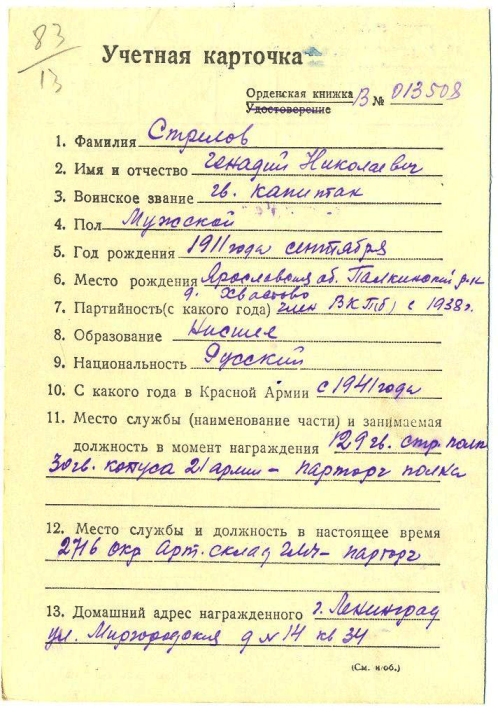 83
13
Учетная карточка
Орденская книжка В № 013508
Удостоверение
1. Фамилия Стрилов
2. Имя и отчество Генадий Николаевич
3. Воинское звание гв. капитан
4. Пол Мужской
5. Год рождения 1911 года сентября
6. Место рождения Ярославская об. Палкинский р-н
д. Хвастово
7. Партийность(с какого года) член ВКП(б) с 1938г.
8. Образование Нисшее
9. Национальность Русский
10. С какого года в Красной Армии с 1941 года
11. Место службы (наименование части) и занимаемая
должность в момент награждения 129 гв. стр. полк
30 гв. копуса 21 армии – парторг полка
12. Место службы и должность в настоящее время
2716 окр арт. склад – парторг
13. Домашний адрес награжденного г. Ленинград
ул. Миргородская д № 14 кв 34
(См. н/об.)